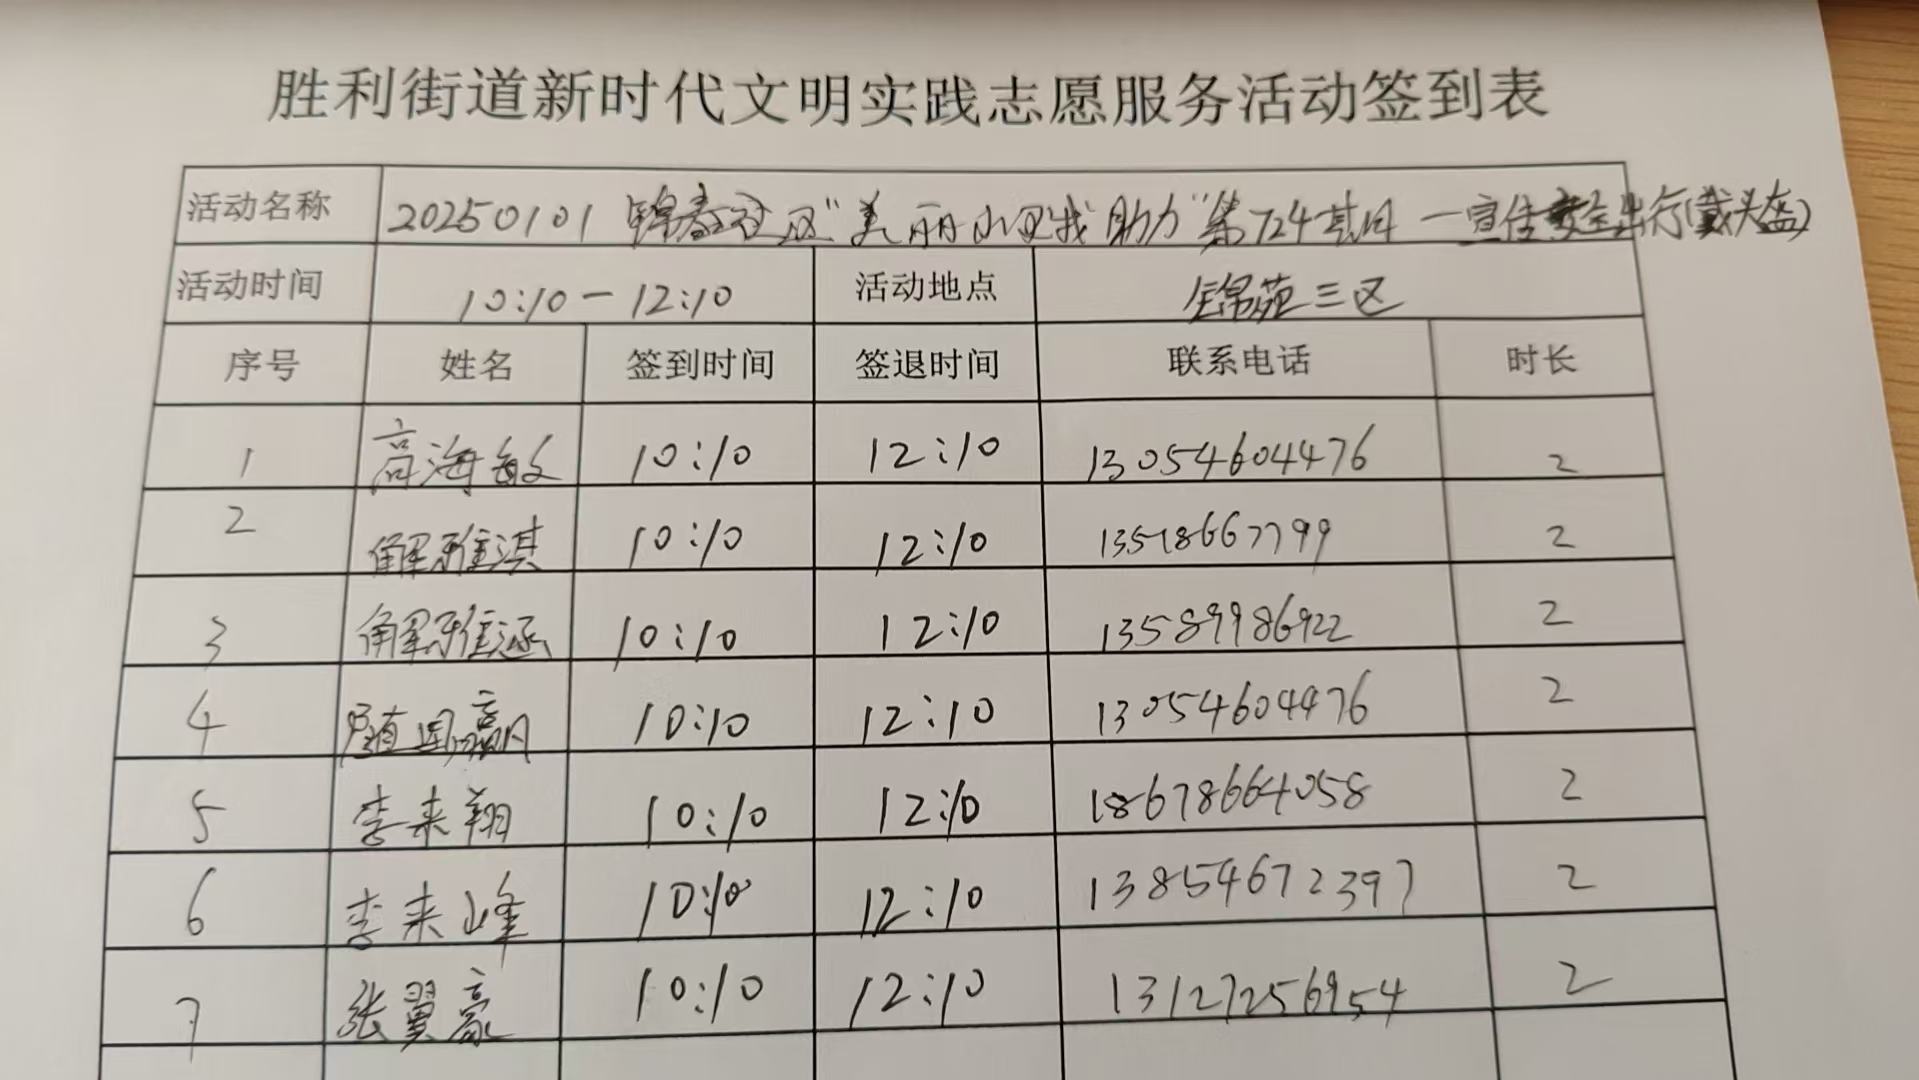 胜利街道新时代文明实践志愿服务活动签到表
活动名称 20250101 锦春社区“美丽小区我助力”第724期 一宣传安全出行(戴头盔)
活动时间 10:10-12:10 活动地点 锦苑三区
序号 姓名 签到时间 签退时间 联系电话 时长
1 高海敏 10:10 12:10 13054604476 2
2 解雅淇 10:10 12:10 13518667799 2
3 解雅涵 10:10 12:10 13589986922 2
4 10:10 12:10 13054604476 2
5 李来翔 10:10 12:10 18678664058 2
6 李来峰 10:10 12:10 13854672397 2
7 张翼豪 10:10 12:10 13127256954 2